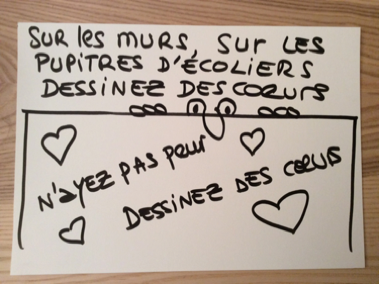 SUR les MURS, SUR LES
PUPITRES D'ÉCOLIERS
DESSINEZ DES CŒURS
N'AYEZ PAS peur
DESSINEZ DES CŒURS